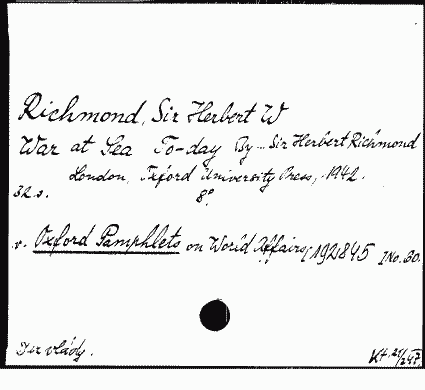 Richmond, Sir Herbert W
War at Sea To-day By... Sir Herbert Richmond
London, Oxford University Press, 1942.
32 s. 8°
v. Oxford Pamphlets on World Affairs, No. 60.
Dar vlády.